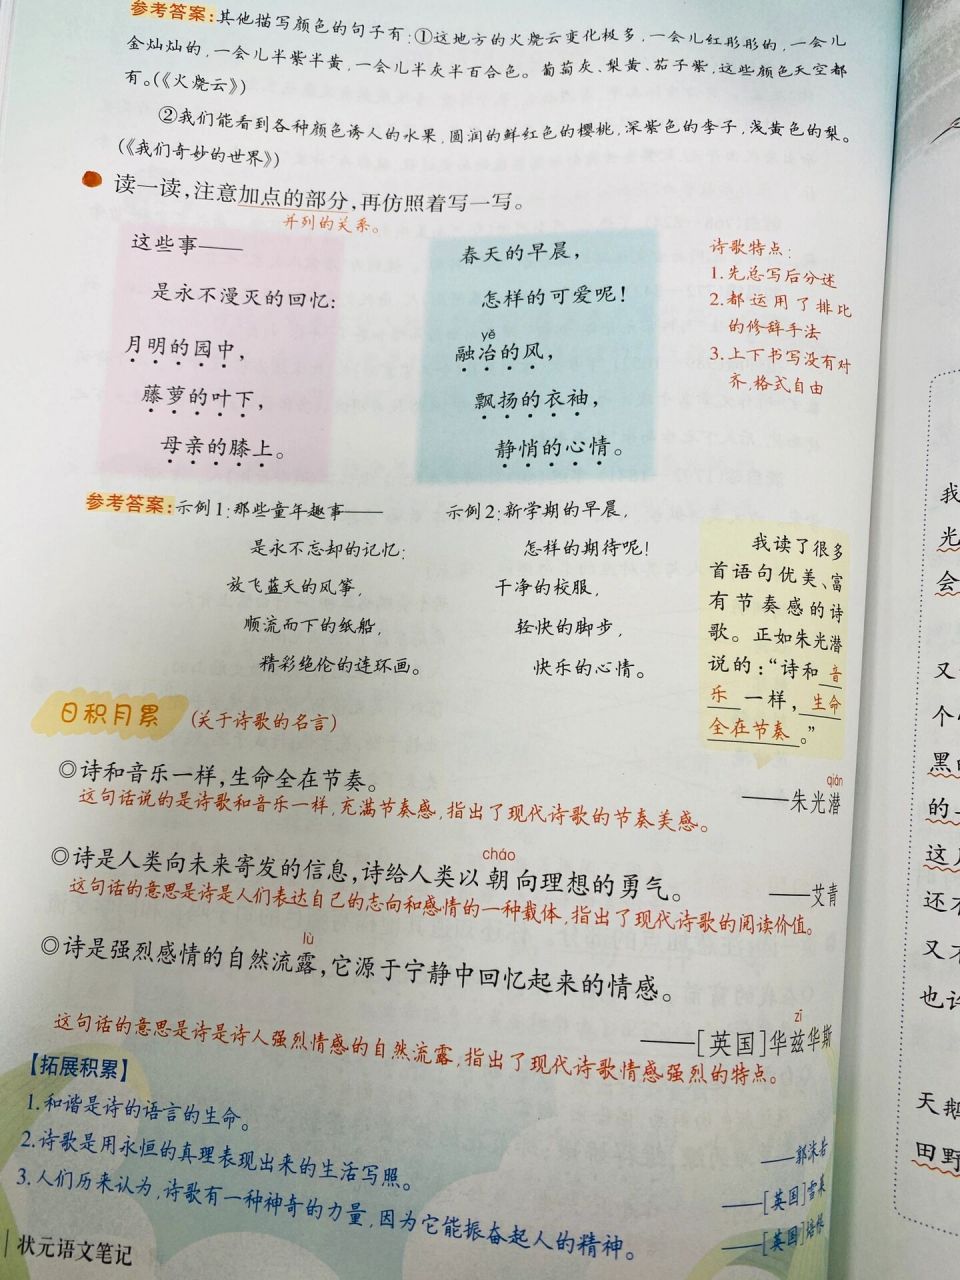 参考答案:其他描写颜色的句子有:①这地方的火烧云变化极多,一会儿红彤彤的,一会儿
金灿灿的,一会儿半紫半黄,一会儿半灰半百合色。葡萄灰、梨黄、茄子紫,这些颜色天空都
有。(《火烧云》)
②我们能看到各种颜色诱人的水果,圆润的鲜红色的樱桃,深紫色的李子,浅黄色的梨。
(《我们奇妙的世界》)
读一读,注意加点的部分,再仿照着写一写。
并列的关系。
这些事——
是永不漫灭的回忆:
月明的园中,
藤萝的叶下,
母亲的膝上。
春天的早晨,
怎样的可爱呢!
yě
融冶的风,
飘扬的衣袖,
静悄的心情。
诗歌特点:
1.先总写后分述
2.都运用了排比
的修辞手法
3.上下书写没有对
齐,格式自由
参考答案:示例1:那些童年趣事——
是永不忘却的记忆:
放飞蓝天的风筝,
顺流而下的纸船,
精彩绝伦的连环画。
示例2:新学期的早晨,
怎样的期待呢!
干净的校服,
轻快的脚步,
快乐的心情。
我读了很多
首语句优美、富
有节奏感的诗
歌。正如朱光潜
说的:“诗和音
乐一样,生命
全在节奏。”
日积月累 (关于诗歌的名言)
◎诗和音乐一样,生命全在节奏。
qián
——朱光潜
这句话说的是诗歌和音乐一样,充满节奏感,指出了现代诗歌的节奏美感。
cháo
◎诗是人类向未来寄发的信息,诗给人类以朝向理想的勇气。
——艾青
这句话的意思是诗是人们表达自己的志向和感情的一种载体,指出了现代诗歌的阅读价值。
lù
◎诗是强烈感情的自然流露,它源于宁静中回忆起来的情感。
zī
——[英国]华兹华斯
这句话的意思是诗是诗人强烈情感的自然流露,指出了现代诗歌情感强烈的特点。
【拓展积累】
1.和谐是诗的语言的生命。
——郭沫若
2.诗歌是用永恒的真理表现出来的生活写照。
——[英国]雪莱
3.人们历来认为,诗歌有一种神奇的力量,因为它能振奋起人的精神。
——[英国]培根
状元语文笔记
我
光
会
又
个
黑的
的
这
还
又
也许
天鹅
田野